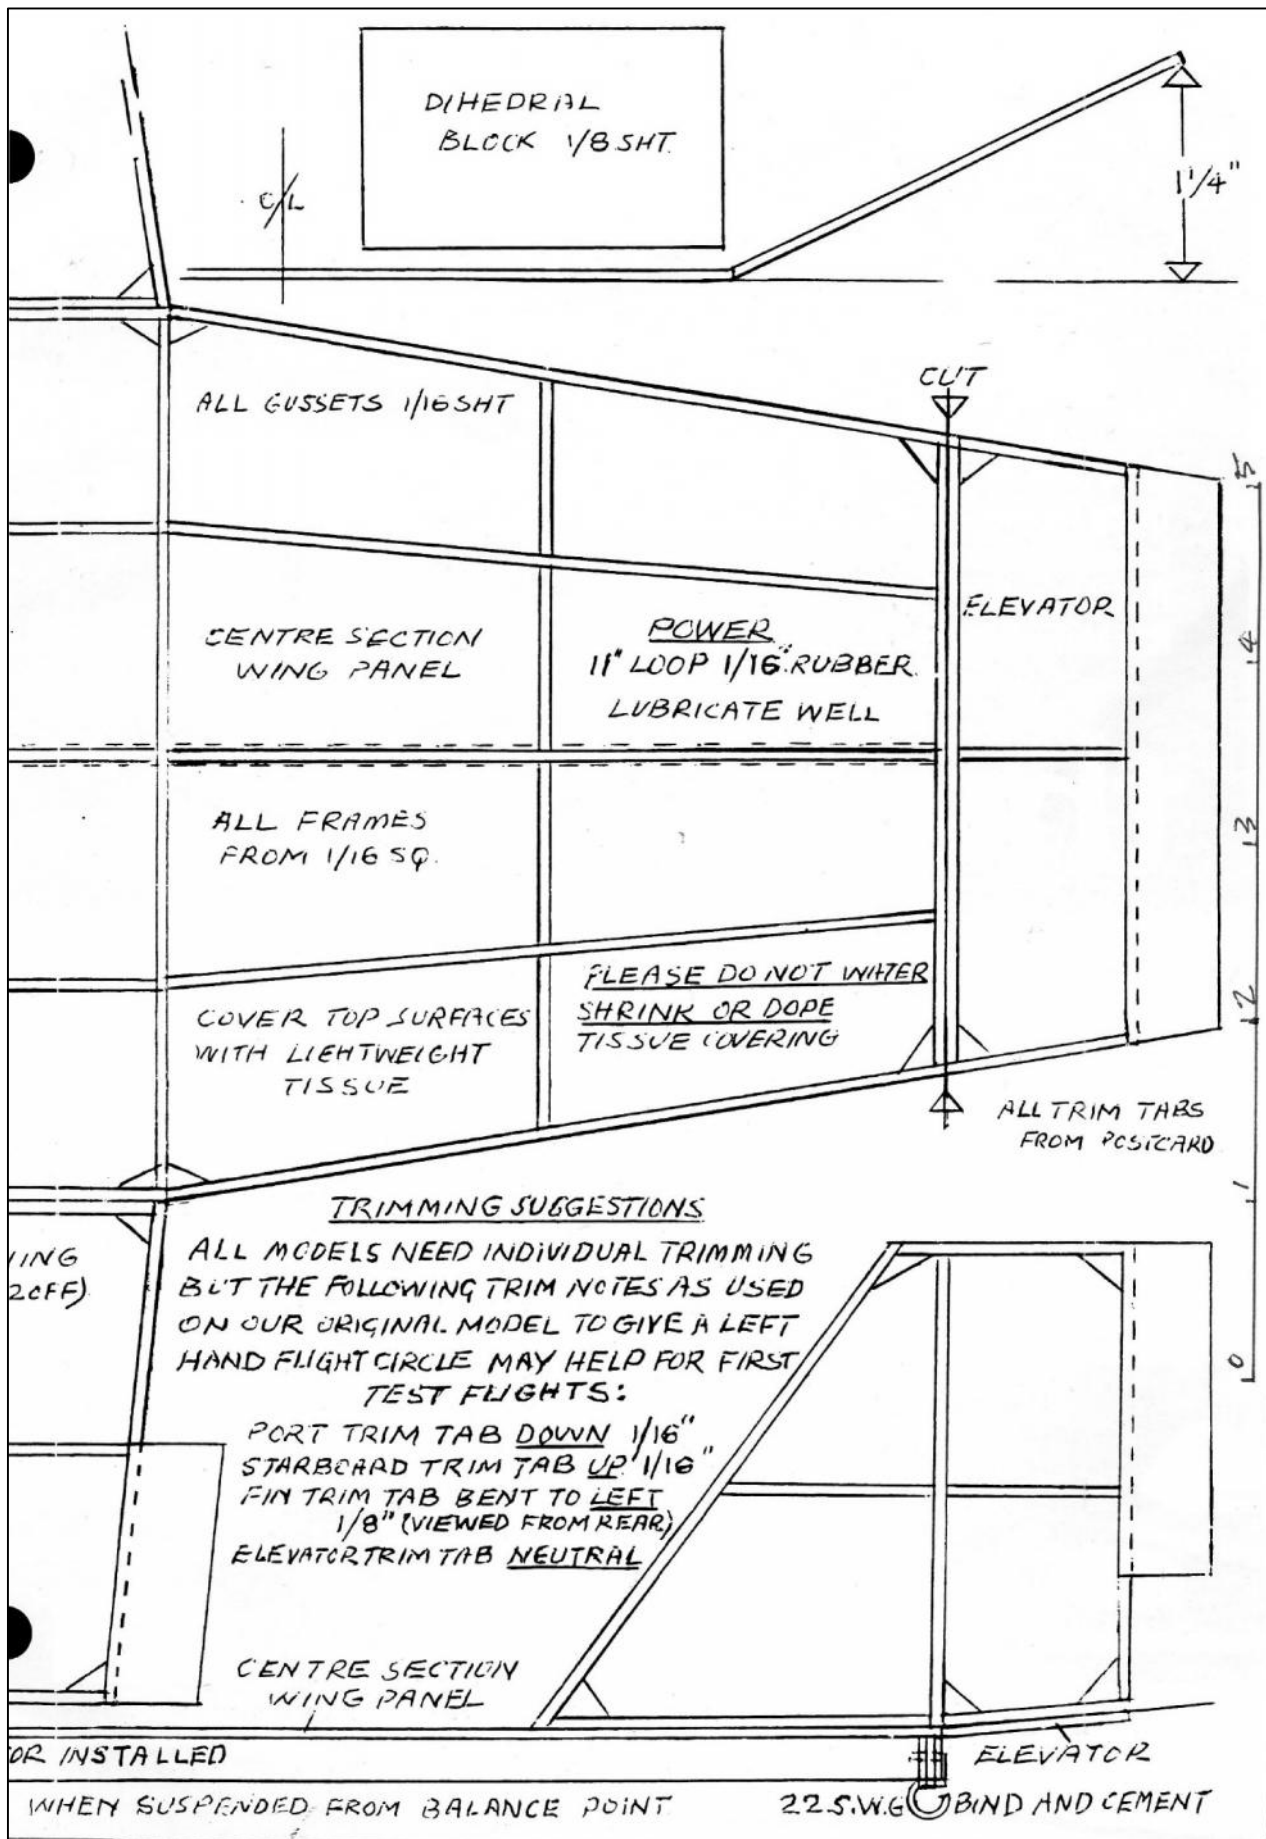 DIHEDRAL
BLOCK 1/8 SHT.
C/L
1 1/4"
CUT
ALL GUSSETS 1/16 SHT
5
ELEVATOR
CENTRE SECTION
WING PANEL
POWER
11" LOOP 1/16" RUBBER.
LUBRICATE WELL
4
ALL FRAMES
FROM 1/16 SQ.
3
PLEASE DO NOT WATER
SHRINK OR DOPE
TISSUE COVERING
COVER TOP SURFACES
WITH LIGHTWEIGHT
TISSUE
2
ALL TRIM TABS
FROM POSTCARD
1
TRIMMING SUGGESTIONS
ALL MODELS NEED INDIVIDUAL TRIMMING
BUT THE FOLLOWING TRIM NOTES AS USED
ON OUR ORIGINAL MODEL TO GIVE A LEFT
HAND FLIGHT CIRCLE MAY HELP FOR FIRST
TEST FLIGHTS:
ING
2 OFF)
0
PORT TRIM TAB DOWN 1/16"
STARBOARD TRIM TAB UP 1/16"
FIN TRIM TAB BENT TO LEFT
1/8" (VIEWED FROM REAR)
ELEVATOR TRIM TAB NEUTRAL
CENTRE SECTION
WING PANEL
OR INSTALLED
ELEVATOR
WHEN SUSPENDED FROM BALANCE POINT
22 S.W.G BIND AND CEMENT